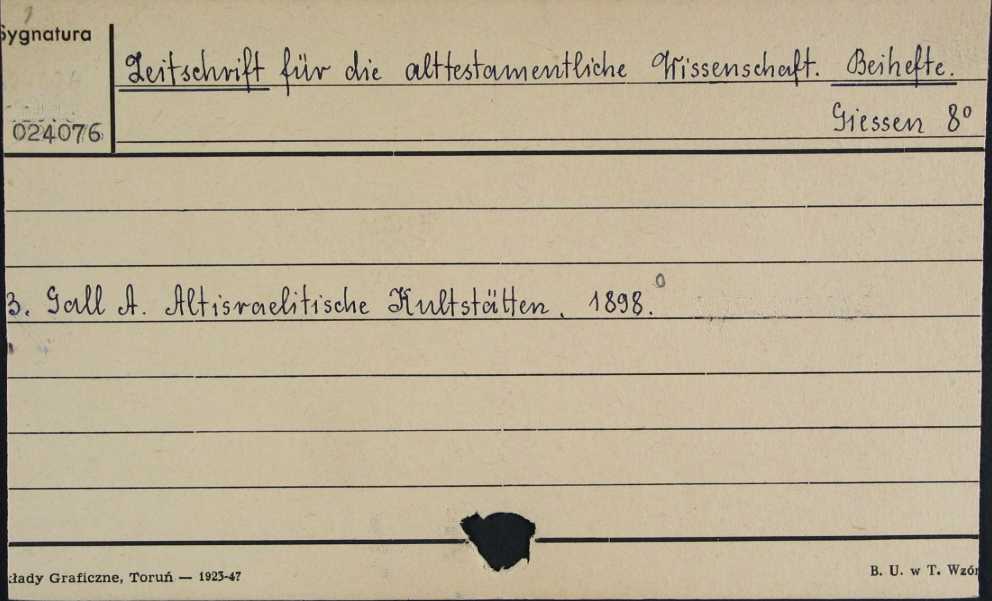 Sygnatura
Zeitschrift für die alttestamentliche Wissenschaft. Beihefte.
024076
Giessen 8°
3. Gall A. Altisraelitische Kultstätten. 1898.
kłady Graficzne, Toruń — 1923-47
B. U. w T. Wzór